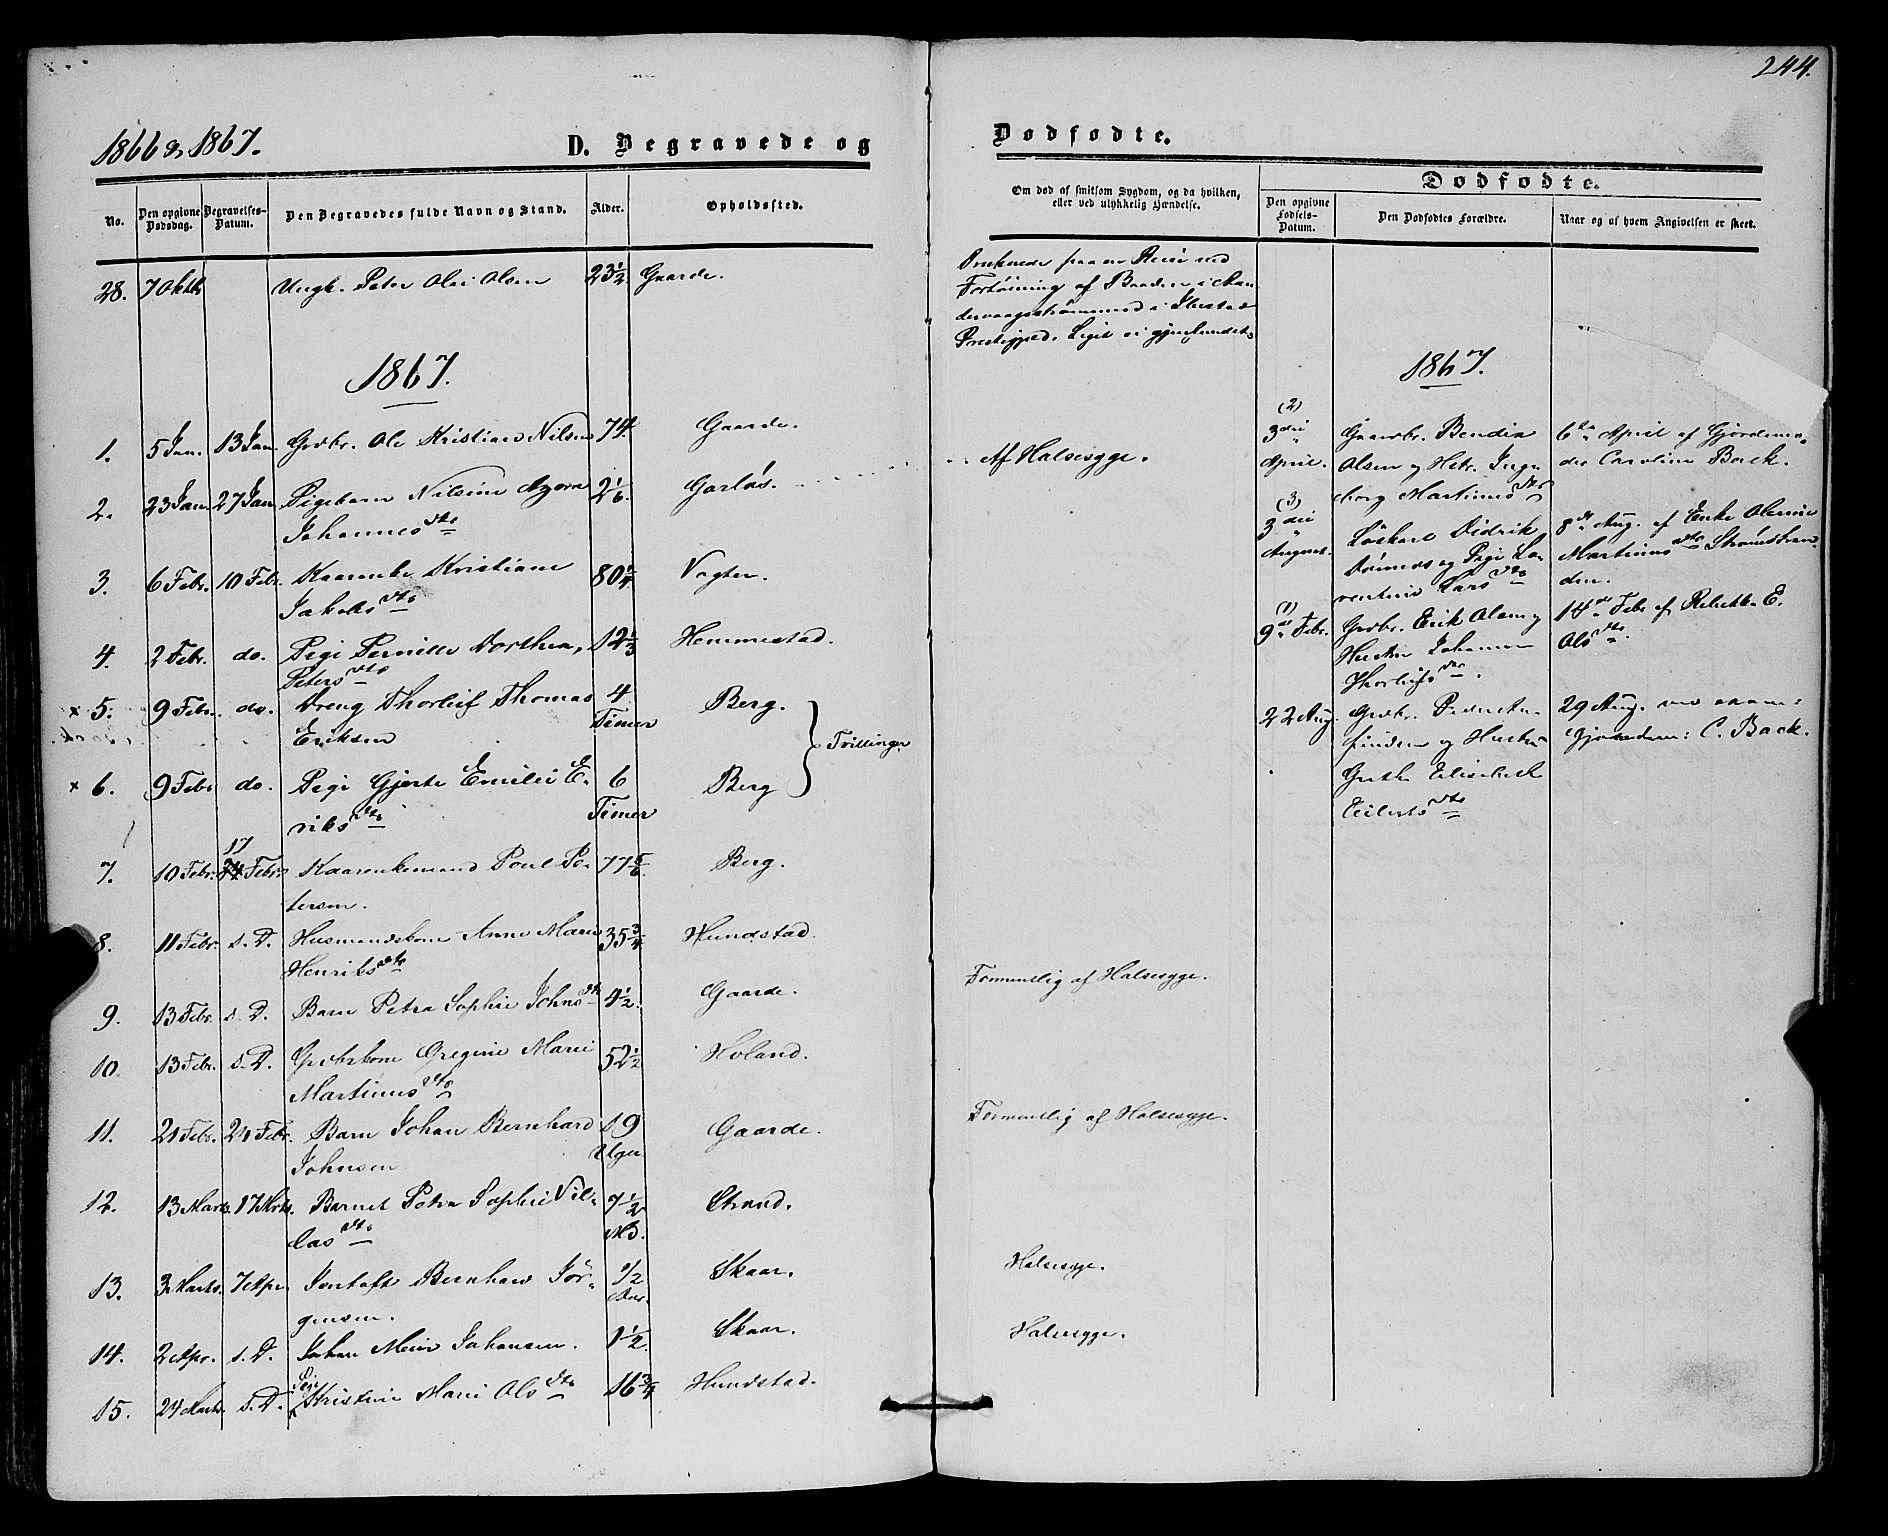 244.
1866 & 1867.
D. Begravede og
Dødfødte.
No.
Den opgivne Dødsdag.
Begravelses-Datum.
Den Begravedes fulde Navn og Stand.
Alder.
Opholdssted.
Om død af smitsom Sygdom, og da hvilken, eller ved ulykkelig Hændelse.
Dødfødte.
Den opgivne Fødsels-Datum.
Den Dødfødtes Forældre.
Naar og af hvem Angivelsen er skeet.
28. 7 Oktb Ungk. Peter Olai Olsen 23½ Gaarde.
Druknede paa en Reise ved
Fortøining af Baaden i
i Ibestad
Prestegjæld. Liget ei gjenfundet.
1867.
1. 5 Jan. 13 Jan. Grdbr. Ole Kristian Nilsen 74. Gaarde.
2. 23 Jan. 27 Jan. Pigebarn Nilsine 2 1/6. Garløs. Af Halsesyge.
Johannesdtr
3. 6 Febr. 10 Feb. Kaarenke Kristiane 80¼ Vogter.
Jakobsdtr
4. 2 Febr. do. Pige Pernille Dorthea, 12⅓ Hemmestad.
Petersdtr
× 5. 9 Febr. do. Dreng Thorleif Thomas 4 Berg.
Eriksen Timer
Tvillinger
× 6. 9 Febr do. Pige Gjerte Emilie E- 6 Berg
riksdtr Timer
7. 10 Febr. 17 Febr. Kaarenkemand Poul Pe- 77 5/6 Berg.
tersen.
8. 11 Febr. s. D. Husmandskone Anne Marie 35¾ Hundstad.
Henriksdtr
9. 13 Febr. s. D. Barn Petra Sophie Johnsdtr 4½. Gaarde. Formentlig af Halsesyge.
10. 13 Febr. s. D. Grdbrkone Gregine Marie 52½ Holand.
Martinusdtr
11. 21 Febr. 24 Febr. Barn Johan Bernhard 19 Gaarde. Formentlig af Halsesyge.
Johnsen Uger
12. 13 Marts. 17 Mrts. Barnet Petra Sophie Nil- 7½ Strand.
dasdtr Md.
13. 3 Marts. 7 Apr. Jentoft Bernhard Jør- ½ Skaar. Halsesyge.
gensen. Aar.
14. 2 Apr. s. D. Johan Meier Johansen. 1½. Skaar. Halsesyge.
15. 24 Marts. s. D. Pige Kristine Marie Olsdtr 16¾ Hundstad.
1867.
(2)
3die April. Gaardbr. Bendix
Olsen og Hstr. Inge-
borg Martinusdtr
6te April af Gjordemo-
der Caroline Back.
(3)
3die August. Løskarl Didrik
og Pige La-
rentine Larsdtr
8de Aug. af Enke Olevine
Martinusdtr Strømstran
den.
(1)
9de Febr. Grdbr. Erik Olsen og
Hustru Johanna
Thorleifsdtr.
14de Febr af Rebekka E.
Olsdtr.
22 Aug. Grdbr. Peder An-
finsen og Hustru
Grethe Elisabeth
Eilertsdtr
29 Aug. ved exam:
Gjordem: C. Back.